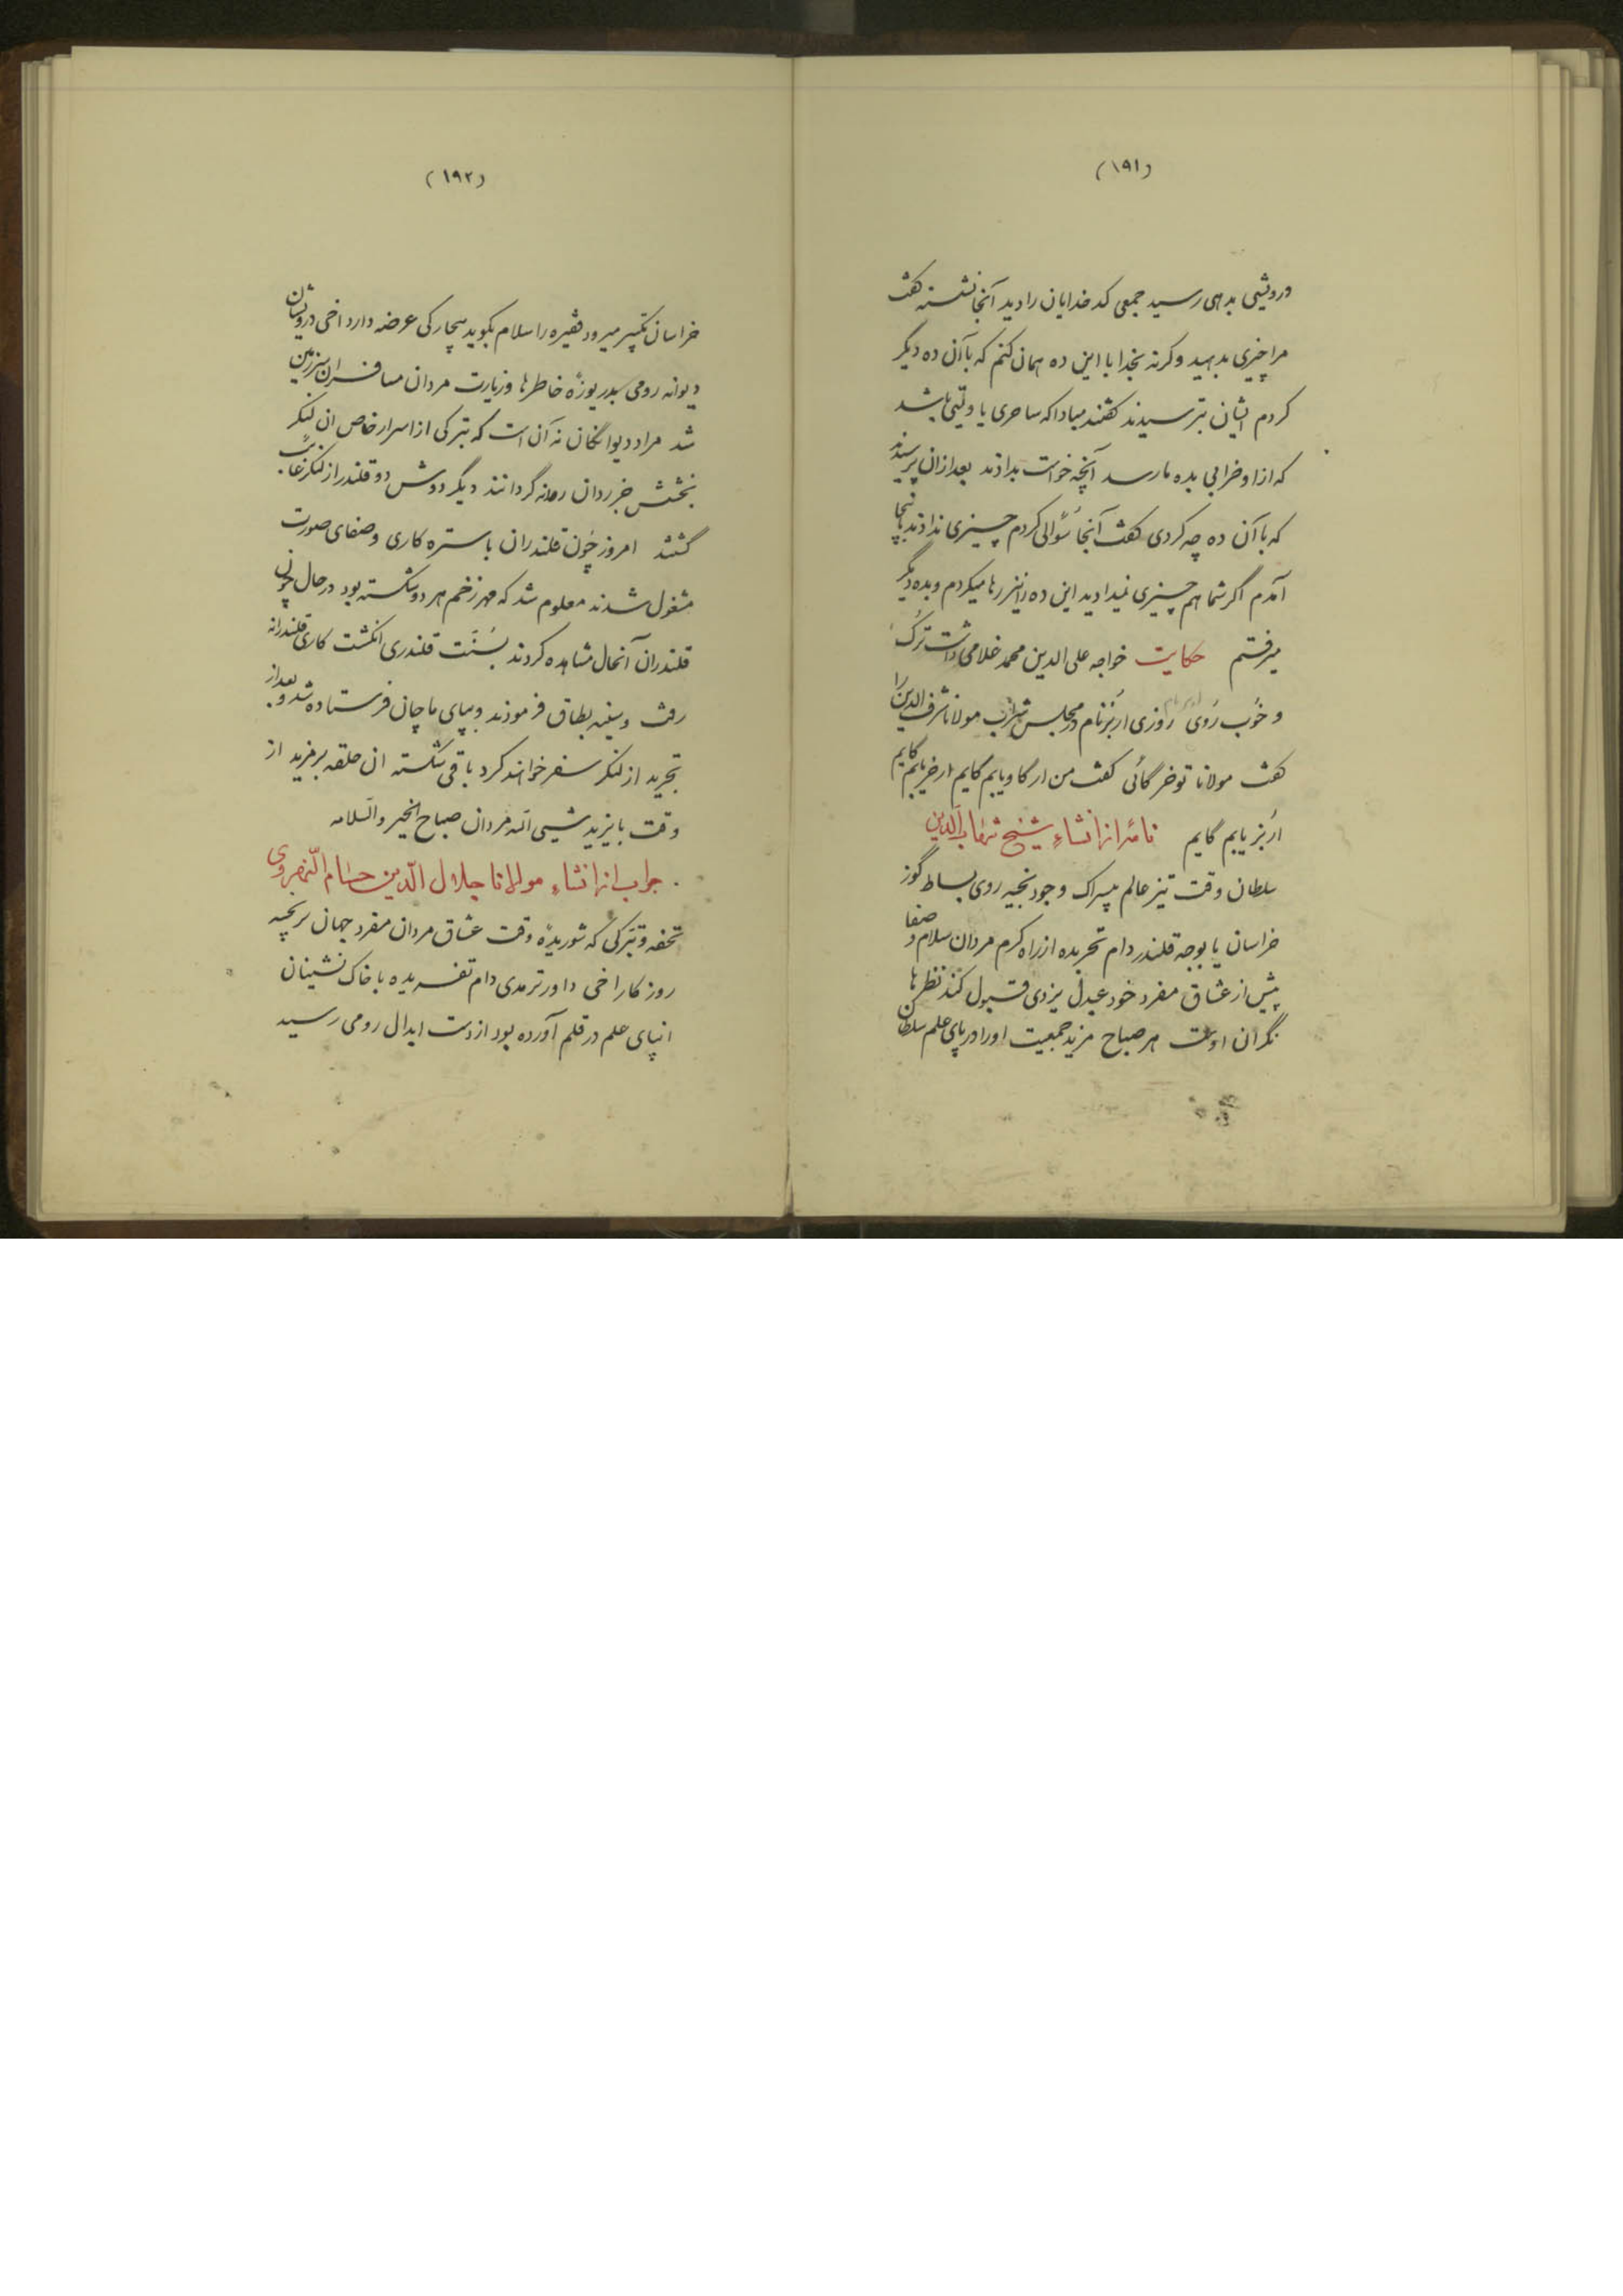 (۱۹۱)
درویشی بدهی رسید جمعی کدخدایان را دید آنجا نشسته گفت
مرا چیزی بدهید وگرنه بخدا با این ده همان کنم که باآن ده دیگر
کردم ایشان بترسیدند گفتند مبادا که ساحری یا ولیی باشد
که ازو خرابی بده ما رسد آنچه خواست بدادند بعد ازان پرسیدند
که باآن ده چه کردی گفت آنجا سؤالی کردم چیزی ندادند باینجا
آمدم اگر شما هم چیزی نمیدادید این ده را نیز رها میکردم وبده دیگر
میرفتم حکایت خواجه علی الدین محمد غلامی داشت ترک
و خوب روی روزی اربز نام در مجلس شراب مولانا شرف الدین را
گفت مولانا تو خر گائی گفت من ار گاو یابم گایم ار خر یابم گایم
اربز یابم گایم نامه از انشاء شیخ شهاب الدین
سلطان وقت تیز عالم پیراک وجود بخیه روی بساط گوز
خراسان یا بوجه قلندر دام تجریده از راه کرم مردان سلام و صفا
پیش از عشاق مفرد خود عبدل یزدی قبول کند نظرها
نگران اوست هر صباح مزید جمعیت اورا در پای علم سلطان
(۱۹۲)
خراسان تکبیر میرود فقیره را سلام بگوید بیچارکی عرضه دارد اخی درویشان
دیوانه رومی بدریوزهٔ خاطرها وزیارت مردان مسافر ان سرزمین
شد مراد دیوانگان نه آن است که تبرکی از اسرار خاص ان لنگر
بخشش خبر ردان روانه گردانند دیگر دوش دو قلندر از لنگر غایب
گشتند امروز چون قلندران باستره کاری وصفای صورت
مشغول شدند معلوم شد که مهر زخم هر دو شکسته بود در حال چون
قلندران آنحال مشاهده کردند بسنت قلندری انگشت کاری قلندرانه
رفت وسینه بطاق فرمودند وبپای ماچان فرستاده شد و بعد از
تجرید از لنگر سفر خواهند کرد باقی شکسته ان حلقه بر مزید از
وقت بایزید شیی الله مردان صباح الخیر والسلامه
جواب از انشاء مولانا جلال الدین حسام الهروی
تحفه و تبرکی که شوریدهٔ وقت عشاق مردان مفرد جهان سر بخیه
روزگار اخی داور ترمدی دام تفریده با خاک نشینان
انپای علم در قلم آورده بود از دست ابدال رومی رسید